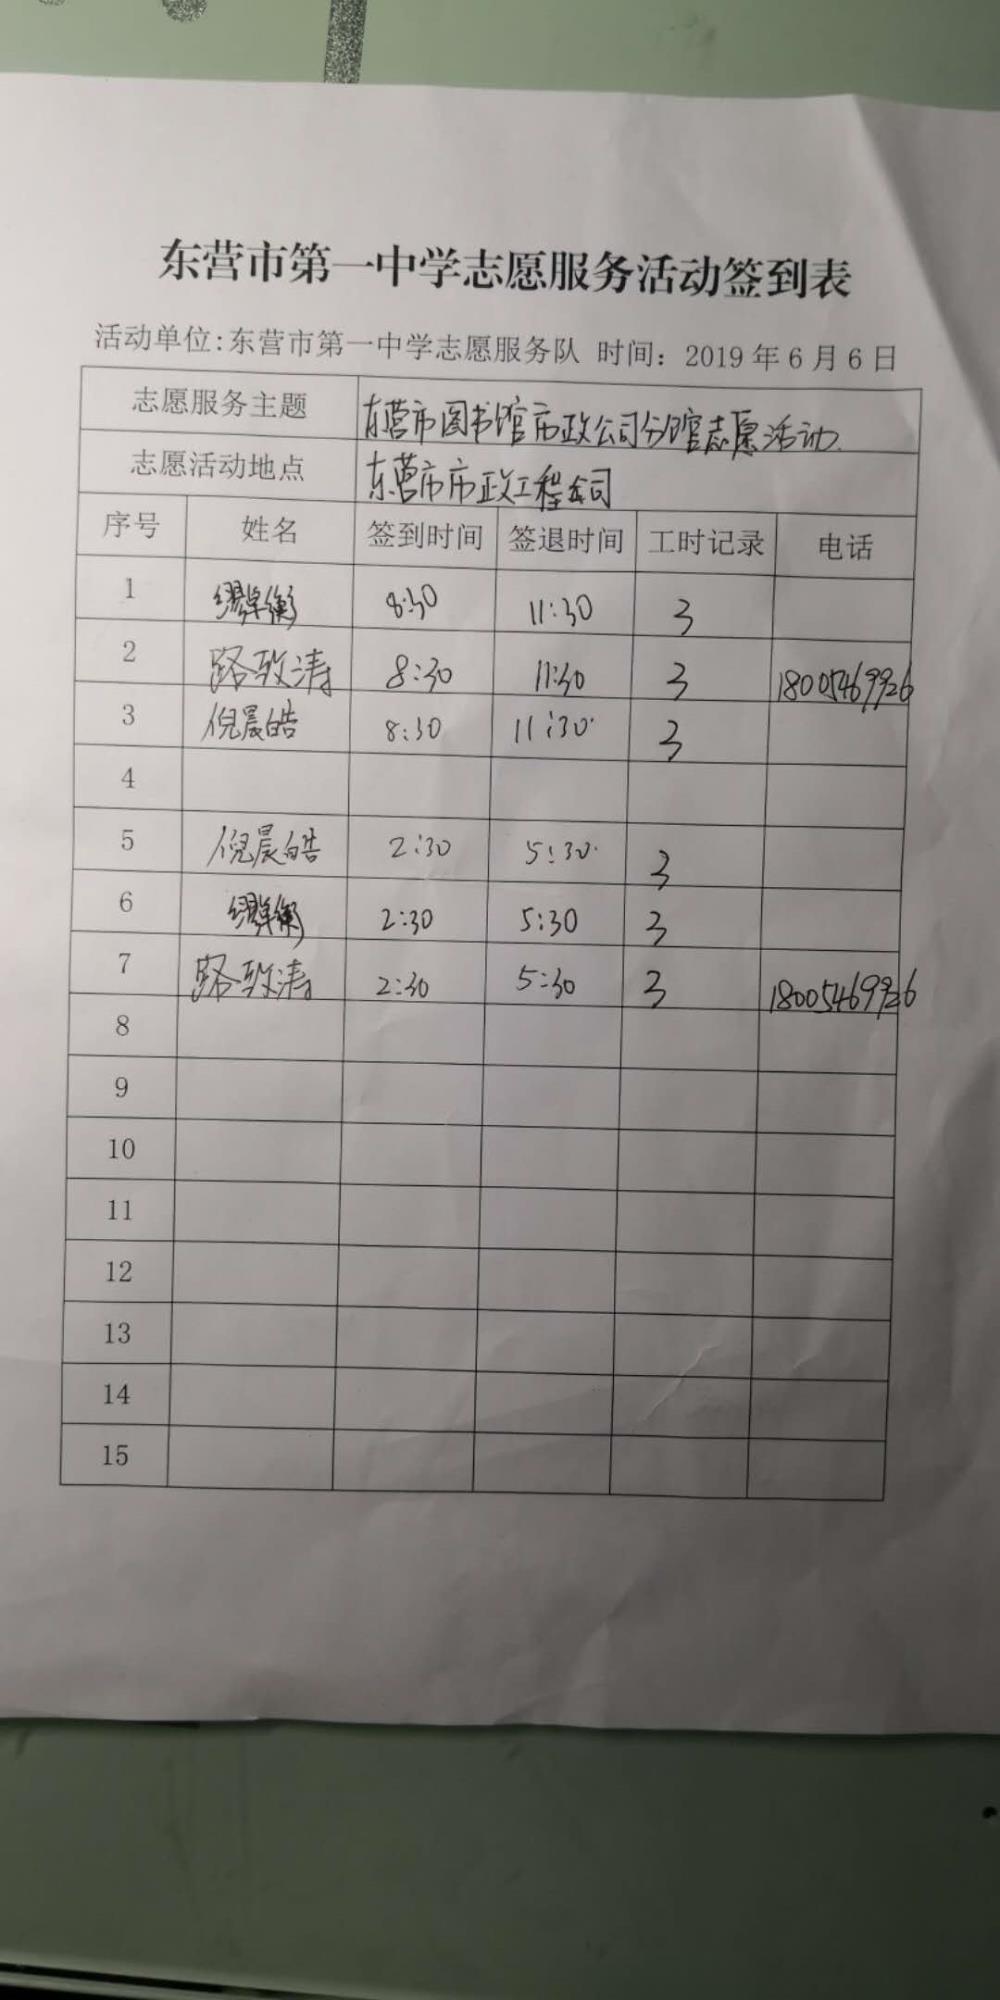 东营市第一中学志愿服务活动签到表
活动单位:东营市第一中学志愿服务队 时间：2019年6月6日
志愿服务主题 东营市图书馆市政公司分馆志愿活动.
志愿活动地点 东营市市政工程公司
序号 姓名 签到时间 签退时间 工时记录 电话
1 缪卓衡 8:30 11:30 3
2 路致涛 8:30 11:30 3 18005469926
3 倪晨皓 8:30 11:30 3
4
5 倪晨皓 2:30 5:30 3
6 缪卓衡 2:30 5:30 3
7 路致涛 2:30 5:30 3 18005469926
8
9
10
11
12
13
14
15